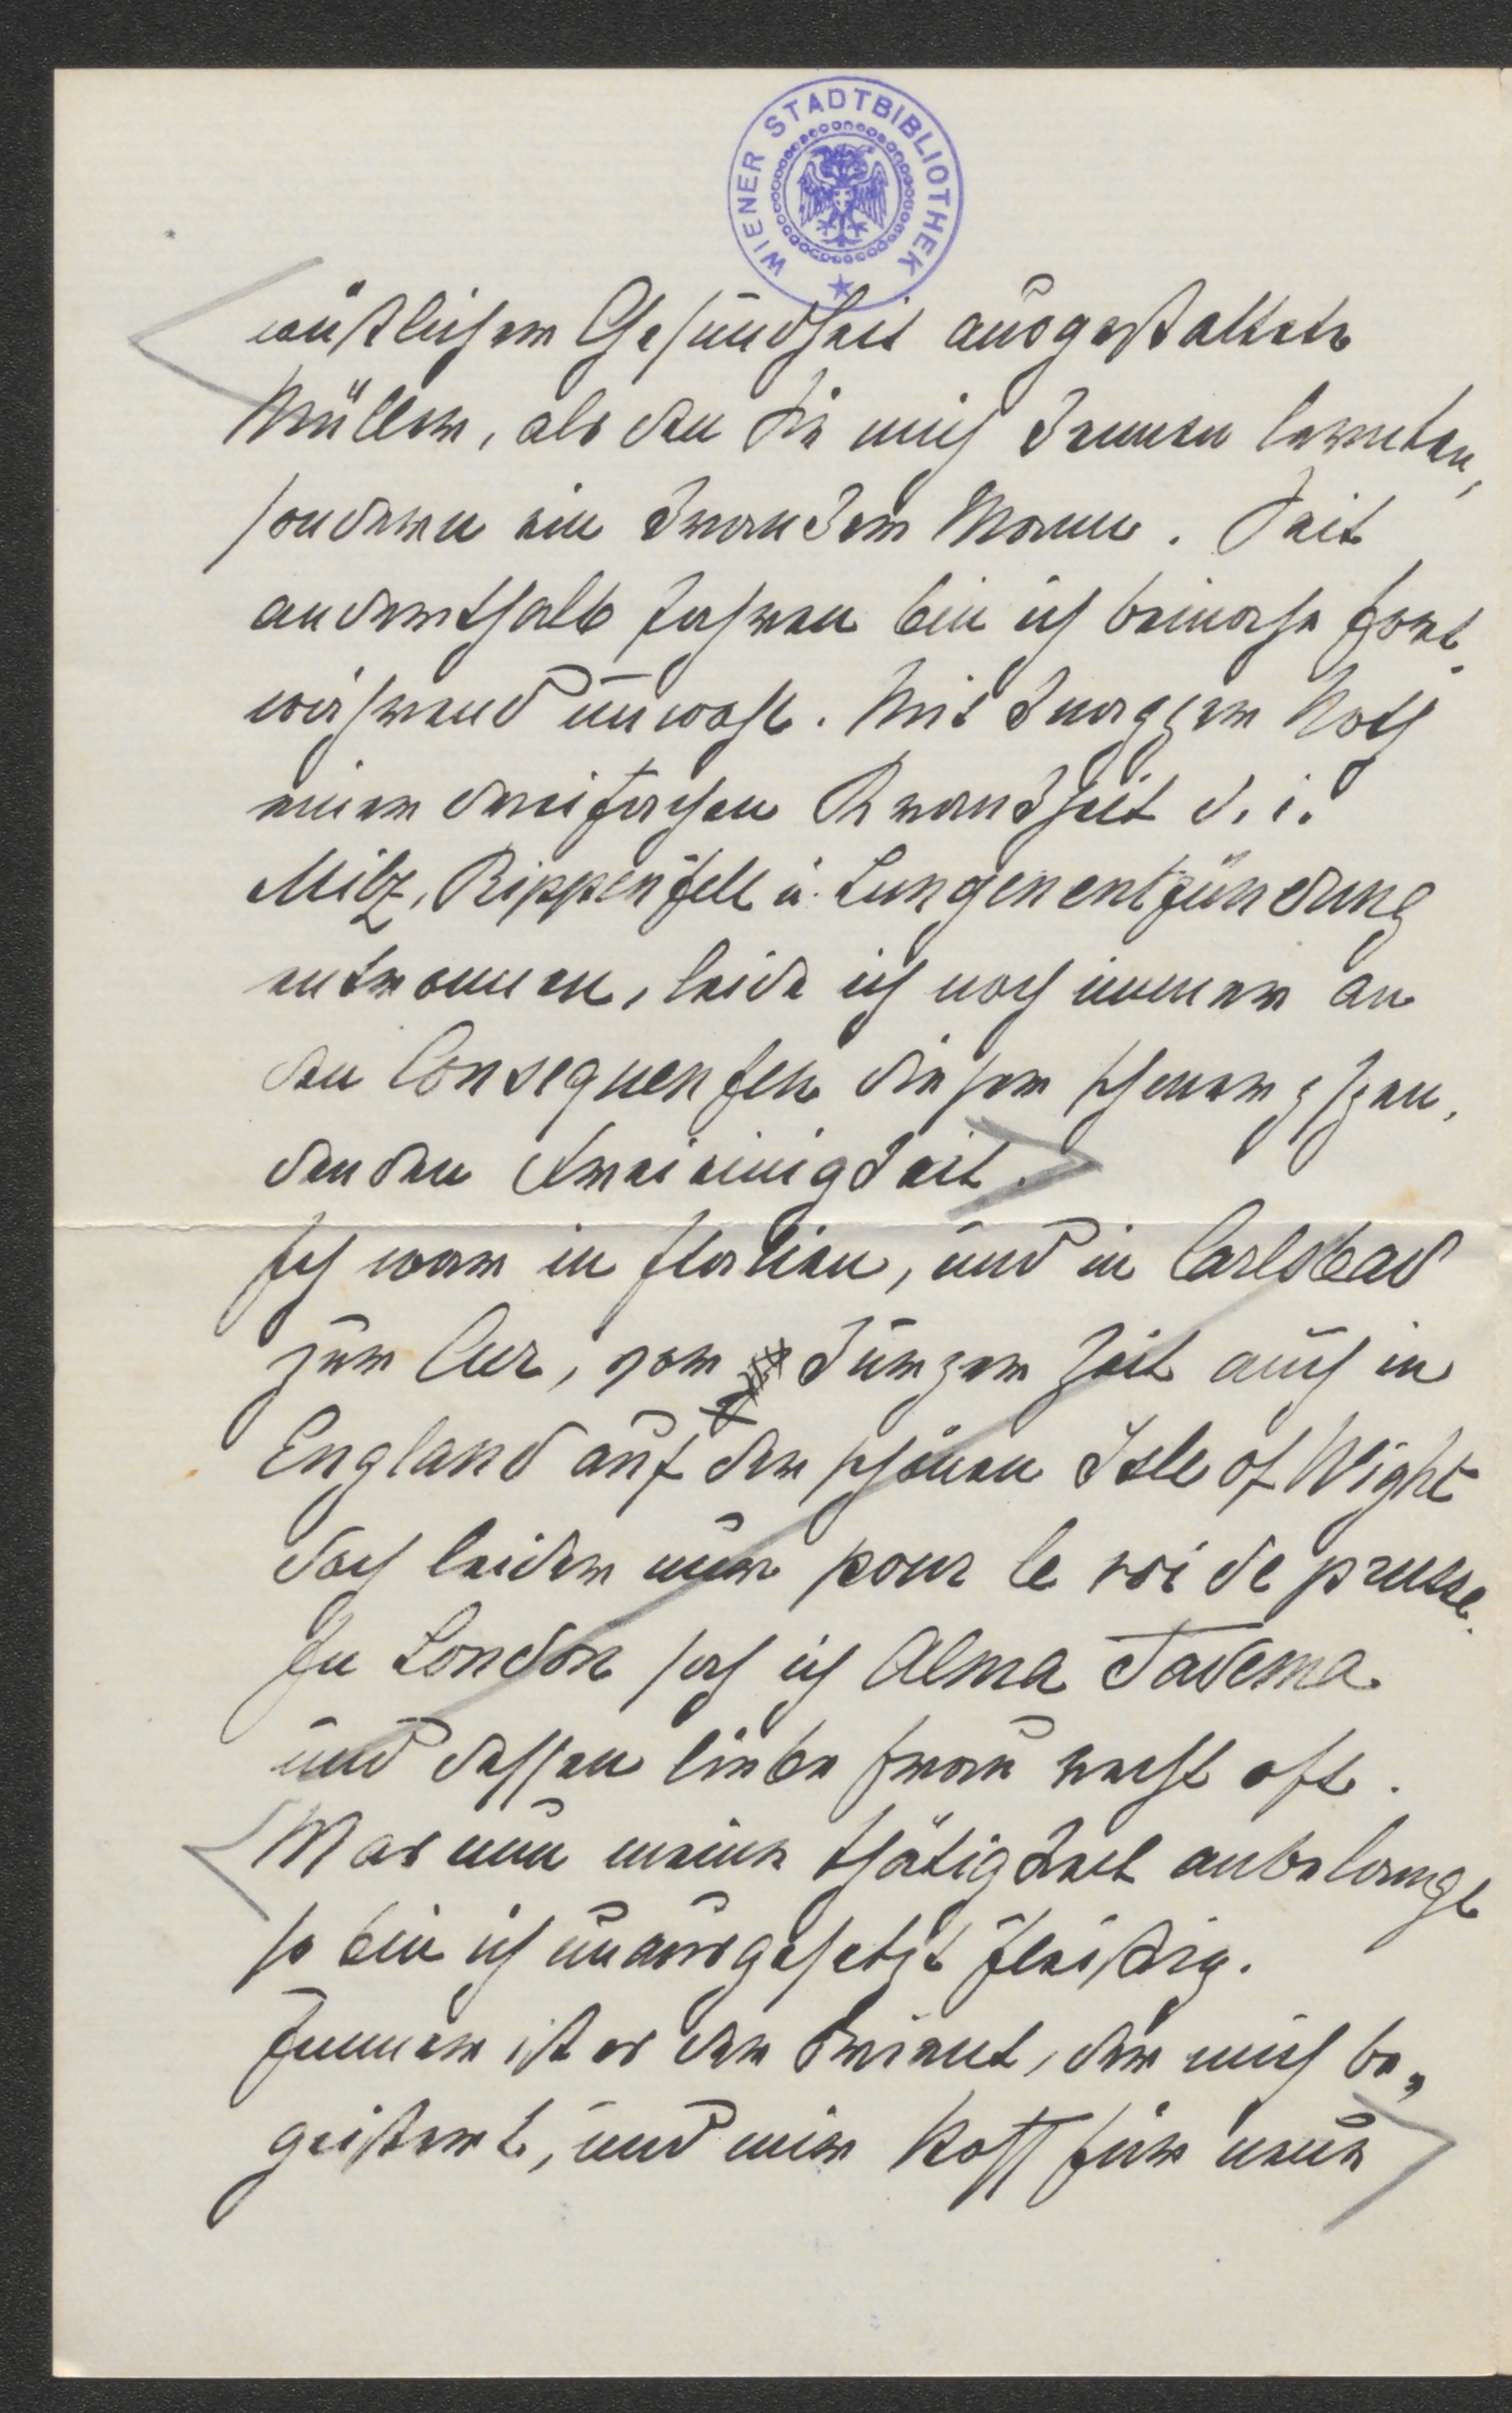 WIENER STADTBIBLIOTHEK
wüstlicher Gesundheit ausgestattete
Müller, als den Sie mich kennen lernten,
sondern ein kranker Mann. Seit
anderthalb Jahren bin ich beinahe fort-
während unwohl. Mit knapper Noth
einer dreifachen Krankheit d. i.
Milz, Rippenfell u. Lungenentzündung
entronnen, leide ich noch immer an
den Consequenzen dieser
denden Dreieinigkeit.
Ich war in Italien, und in Carlsbad
zur Cur, vor kurzer Zeit auch in
England auf der schönen Isle of Wight
doch leider nur pour le roi de prusse.
In London sah ich Alma Tadema
und dessen liebe Frau recht oft.
Was nun meine Thätigkeit anbelangt
so bin ich unausgesetzt fleißig.
Immer ist es der Orient, der mich be-
geistert, und mir Stoff für neue